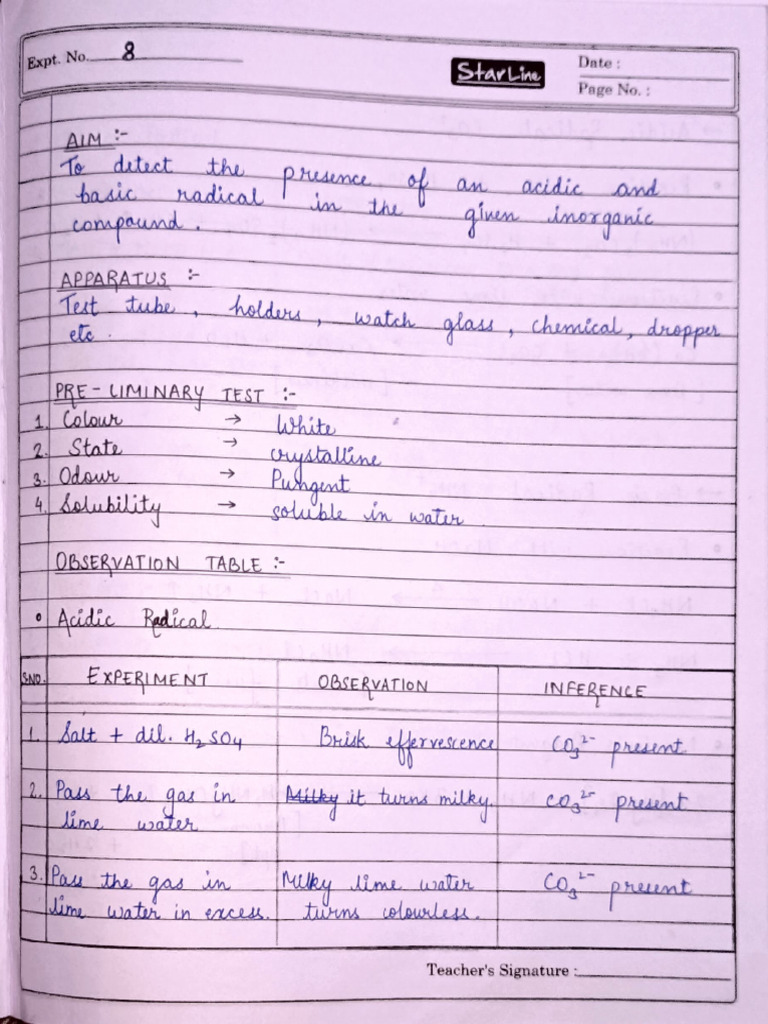 Expt. No. 8
StarLine
Date :
Page No. :
AIM :-
To detect the presence of an acidic and
basic radical in the given inorganic
compound.
APPARATUS :-
Test tube, holders, watch glass, chemical, dropper
etc.
PRE-LIMINARY TEST :-
1. Colour → White
2. State → crystalline
3. Odour → Pungent
4. Solubility → soluble in water
OBSERVATION TABLE :-
• Acidic Radical
S.NO. EXPERIMENT OBSERVATION INFERENCE
1. Salt + dil. H₂SO₄ Brisk effervescence CO₃²⁻ present
2. Pass the gas in Milky it turns milky. CO₃²⁻ present
lime water
3. Pass the gas in Milky lime water CO₃²⁻ present
lime water in excess. turns colourless.
Teacher's Signature :